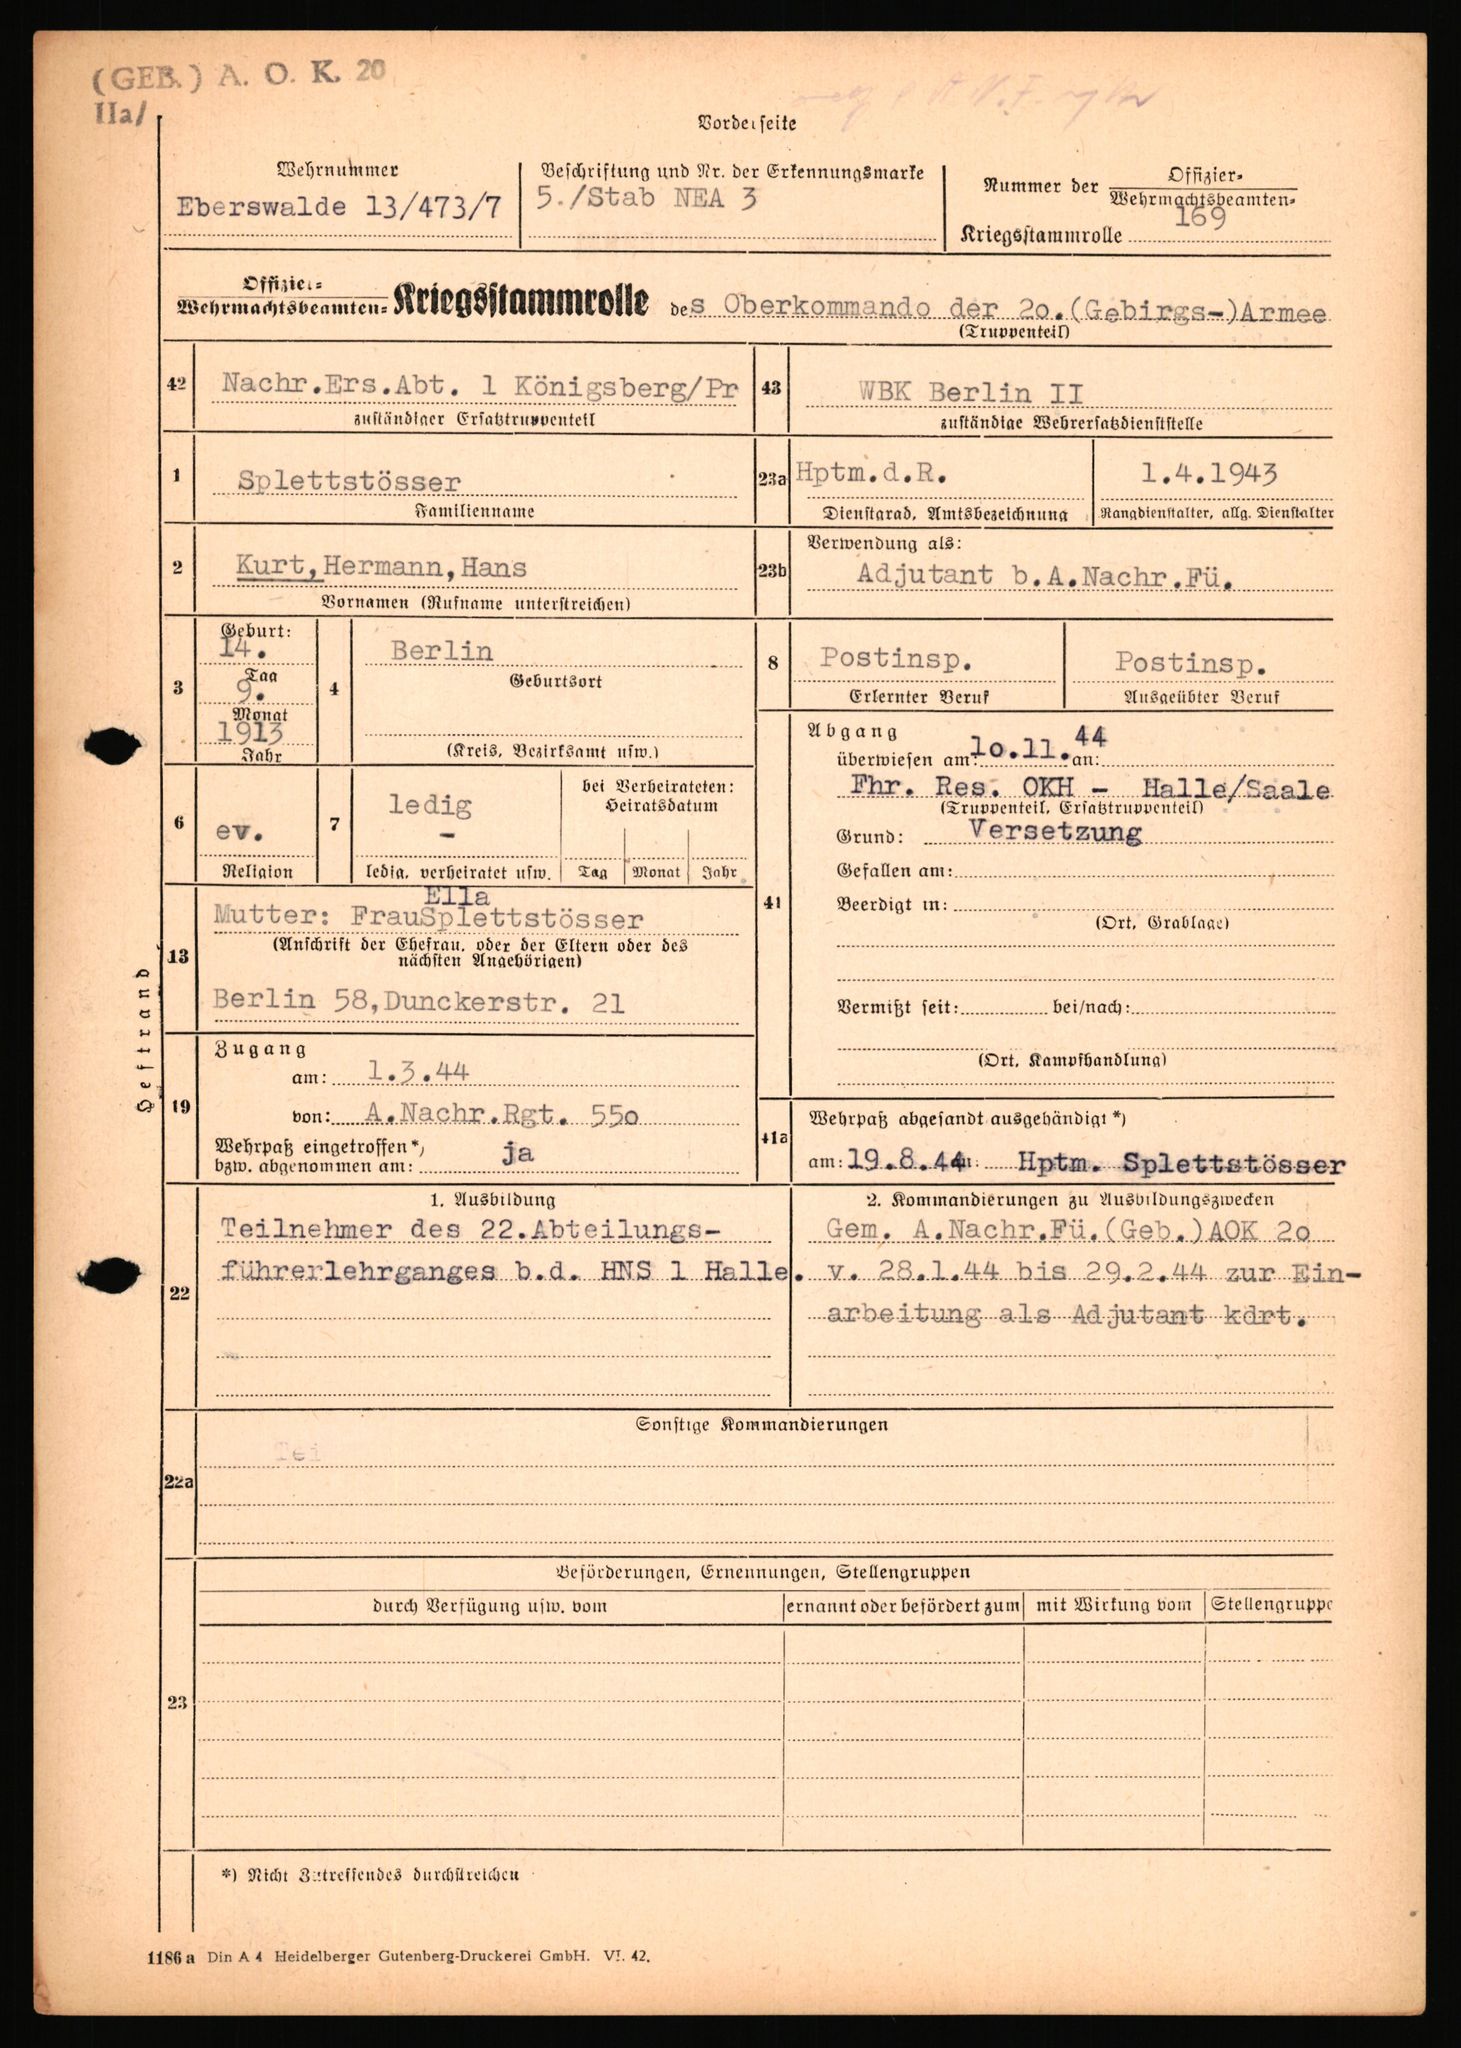 (GEB.) A. O. K. 20
IIa/
Vorderseite
Wehrnummer
Eberswalde 13/473/7
Beschriftung und Nr. der Erkennungsmarke
5./Stab NEA 3
Nummer der Offizier-
Wehrmachtsbeamten-
169
Kriegsstammrolle
Offizier-
Wehrmachtsbeamten- Kriegsstammrolle des Oberkommando der 2o.(Gebirgs-)Armee
(Truppenteil)
42 Nachr.Ers.Abt. 1 Königsberg/Pr
zuständiger Ersatztruppenteil
43 WBK Berlin II
zuständige Wehrersatzdienststelle
1 Splettstösser
Familienname
23a Hptm.d.R. 1.4.1943
Dienstgrad, Amtsbezeichnung Rangdienstalter, allg. Dienstalter
2 Kurt,Hermann,Hans
Vornamen (Rufname unterstreichen)
23b Verwendung als:
Adjutant b.A.Nachr.Fü.
3 Geburt:
14.
Tag
9.
Monat
1913
Jahr
4 Berlin
Geburtsort
(Kreis, Bezirksamt usw.)
8 Postinsp. Postinsp.
Erlernter Beruf Ausgeübter Beruf
6 ev.
Religion
7 ledig
-
ledig, verheiratet usw.
bei Verheirateten:
Heiratsdatum
Tag Monat Jahr
41 Abgang
überwiesen am: 1o.11.44 an:
Fhr. Res. OKH - Halle/Saale
(Truppenteil, Ersatztruppenteil)
Grund: Versetzung
Gefallen am:
Beerdigt in:
(Ort, Grablage)
Vermißt seit: bei/nach:
(Ort, Kampfhandlung)
13 Ella
Mutter: FrauSplettstösser
(Anschrift der Ehefrau, oder der Eltern oder des
nächsten Angehörigen)
Berlin 58,Dunckerstr. 21
Heftrand
19 Zugang
am: 1.3.44
von: A.Nachr.Rgt. 55o
Wehrpaß eingetroffen*)
bzw. abgenommen am: ja
41a Wehrpaß abgesandt ausgehändigt *)
am: 19.8.44 an: Hptm. Splettstösser
22 1. Ausbildung
Teilnehmer des 22.Abteilungs-
führerlehrganges b.d. HNS 1 Halle.
2. Kommandierungen zu Ausbildungszwecken
Gem. A.Nachr.Fü.(Geb.)AOK 2o
v. 28.1.44 bis 29.2.44 zur Ein-
arbeitung als Adjutant kdrt.
Sonstige Kommandierungen
Tei
22a
23 Beförderungen, Ernennungen, Stellengruppen
durch Verfügung usw. vom ernannt oder befördert zum mit Wirkung vom Stellengruppe
*) Nicht Zutreffendes durchstreichen
1186a Din A 4 Heidelberger Gutenberg-Druckerei GmbH. VI. 42.